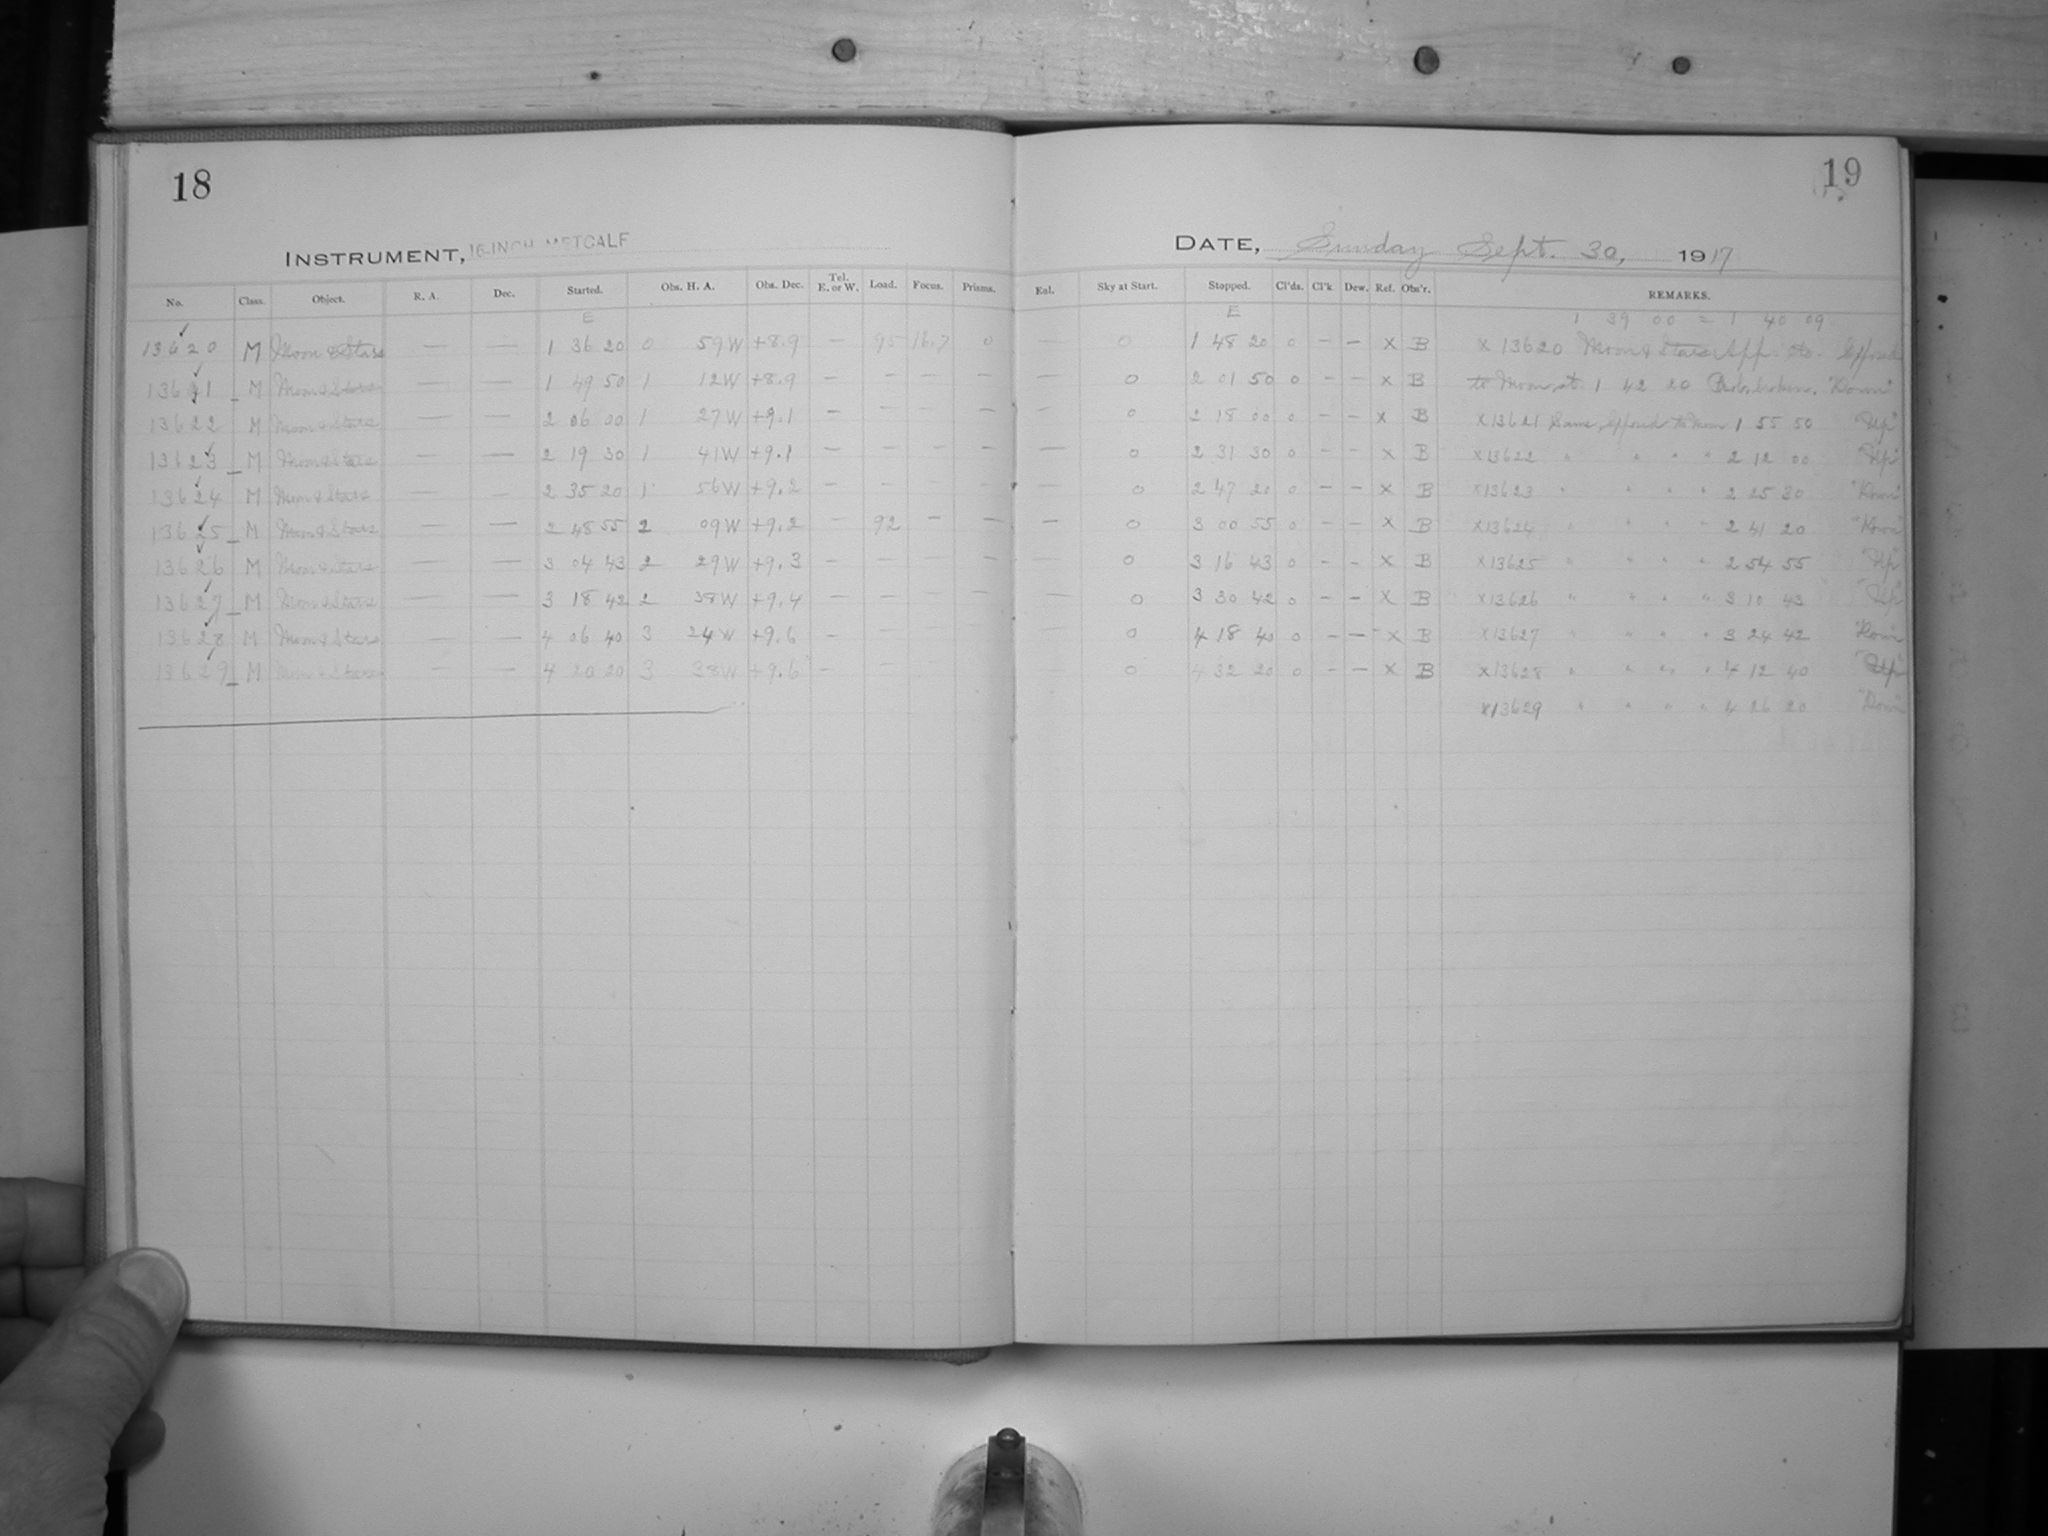 18
INSTRUMENT, 16-INCH METCALF
No. Class. Object. R. A. Dec. Started. Obs. H. A. Obs. Dec. Tel. E. or W. Load. Focus. Prisms.
E
13620 M Moon & Stars — — 1 36 20 0 59W +8.9 — 95 16.7 0
13621 M Moon & Stars — — 1 49 50 1 12W +8.9 — — — —
13622 M Moon & Stars — — 2 06 00 1 27W +9.1 — — — —
13623 M Moon & Stars — — 2 19 30 1 41W +9.1 — — — —
13624 M Moon & Stars — — 2 35 20 1 56W +9.2 — — — —
13625 M Moon & Stars — — 2 48 55 2 09W +9.2 — 92 — —
13626 M Moon & Stars — — 3 04 43 2 29W +9.3 — — — —
13627 M Moon & Stars — — 3 18 42 2 38W +9.4 — — — —
13628 M Moon & Stars — — 4 06 40 3 24W +9.6 — — — —
13629 M Moon & Stars — — 4 20 20 3 38W +9.6 — — — —
19
DATE, Sunday Sept. 30, 1917
Sky at Start. Stopped. Cl'ds. Cl'k Dew. Ref. Obs'r. REMARKS.
E 1 39 00 = 1 40 09
— 0 1 48 20 0 — — X B X 13620 Moon & Stars App.
— 0 2 01 50 0 — — X B to Moon at 1 42 20 "Down"
— 0 2 18 00 0 — — X B X13621 Same, to Moon 1 55 50 "Up"
— 0 2 31 30 0 — — X B X13622 " " " " 2 12 00 "Up"
— 0 2 47 20 0 — — X B X13623 " " " " 2 25 30 "Down"
— 0 3 00 55 0 — — X B X13624 " " " " 2 41 20 "Down"
— 0 3 16 43 0 — — X B X13625 " " " " 2 54 55 "Up"
— 0 3 30 42 0 — — X B X13626 " " " " 3 10 43 "Up"
— 0 4 18 40 0 — — X B X13627 " " " " 3 24 42 "Down"
— 0 4 32 20 0 — — X B X13628 " " " " 4 12 40 "Up"
X13629 " " " " 4 26 20 "Down"